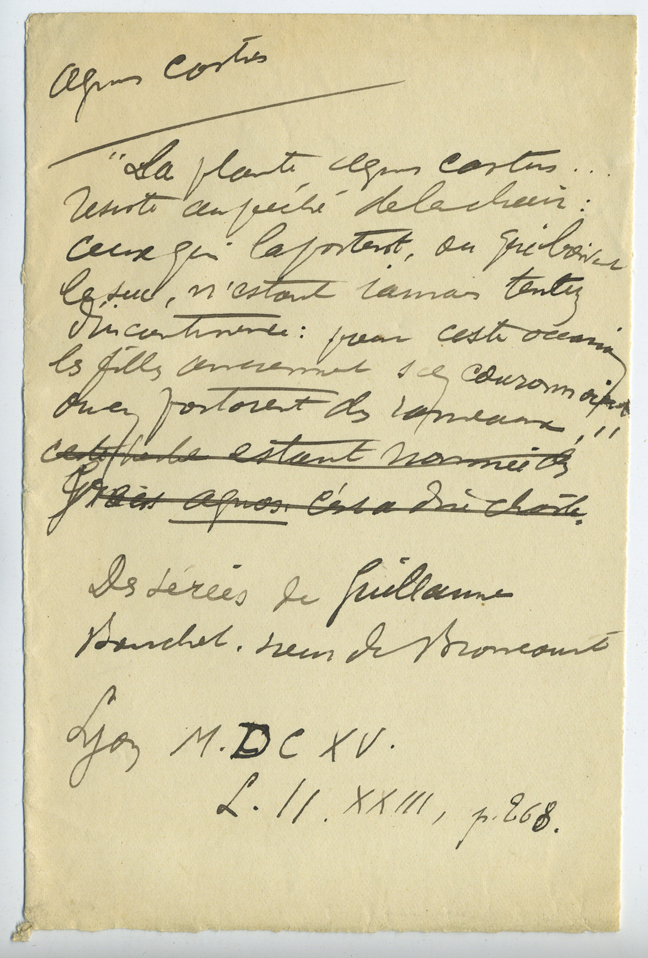 agnus castus
"La plante agnus castus...
resiste au péché de la chair:
ceux qui la portent, ou qui boivent
le suc, n'estant iamais tentez
d'incontinence: pour ceste occasion
les filles anciennement s'en couronnoient
ou en portoient des rameaux,"
ceste herbe estant nommée des
Grecs agnos. c'est a dire chaste.
Des sérées de Guillaume
Bouchet. sieur de Broncourt
Lyon M.DCXV.
L. II. XXIII, p. 268.